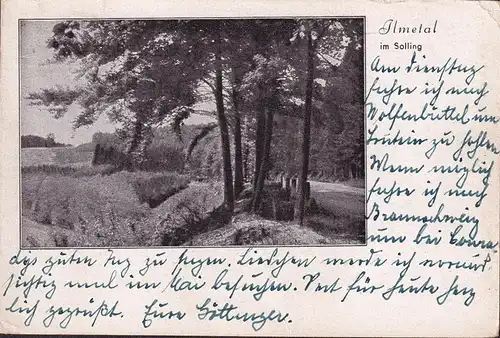 Ilmetal
im Solling
Am Dienstag
fahre ich nach
Wolfenbüttel um
zu holen
Wenn möglich
fahre ich nach
Braunschweig
um bei
guten Tag zu sagen. Lieschen werde ich voraus
sichtig mal im Mai besuchen. Seit für heute herz
lich gegrüßt. Eure Göttinger.